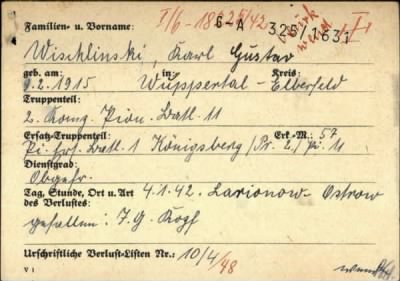 I/6 - 18225/42 6-A 325/1631
Familien- u. Vorname:
Wischlinski, Karl Gustav
geb. am: in Kreis:
9.2.1915 Wuppertal - Elberfeld
Truppenteil:
2. Komp. Pion. Batl. 11
Ersatz-Truppenteil: Erk.-M.: 57
Pi. Ers. Batl. 1 Königsberg/Pr. 2./Pi. 11
Dienstgrad:
Obgefr.
Tag, Stunde, Ort u. Art 4.1.42. Larionow-Ostrow
des Verlustes:
gefallen: I.G. Kopf
Urschriftliche Verlust-Listen Nr.: 10/4/48
V 1